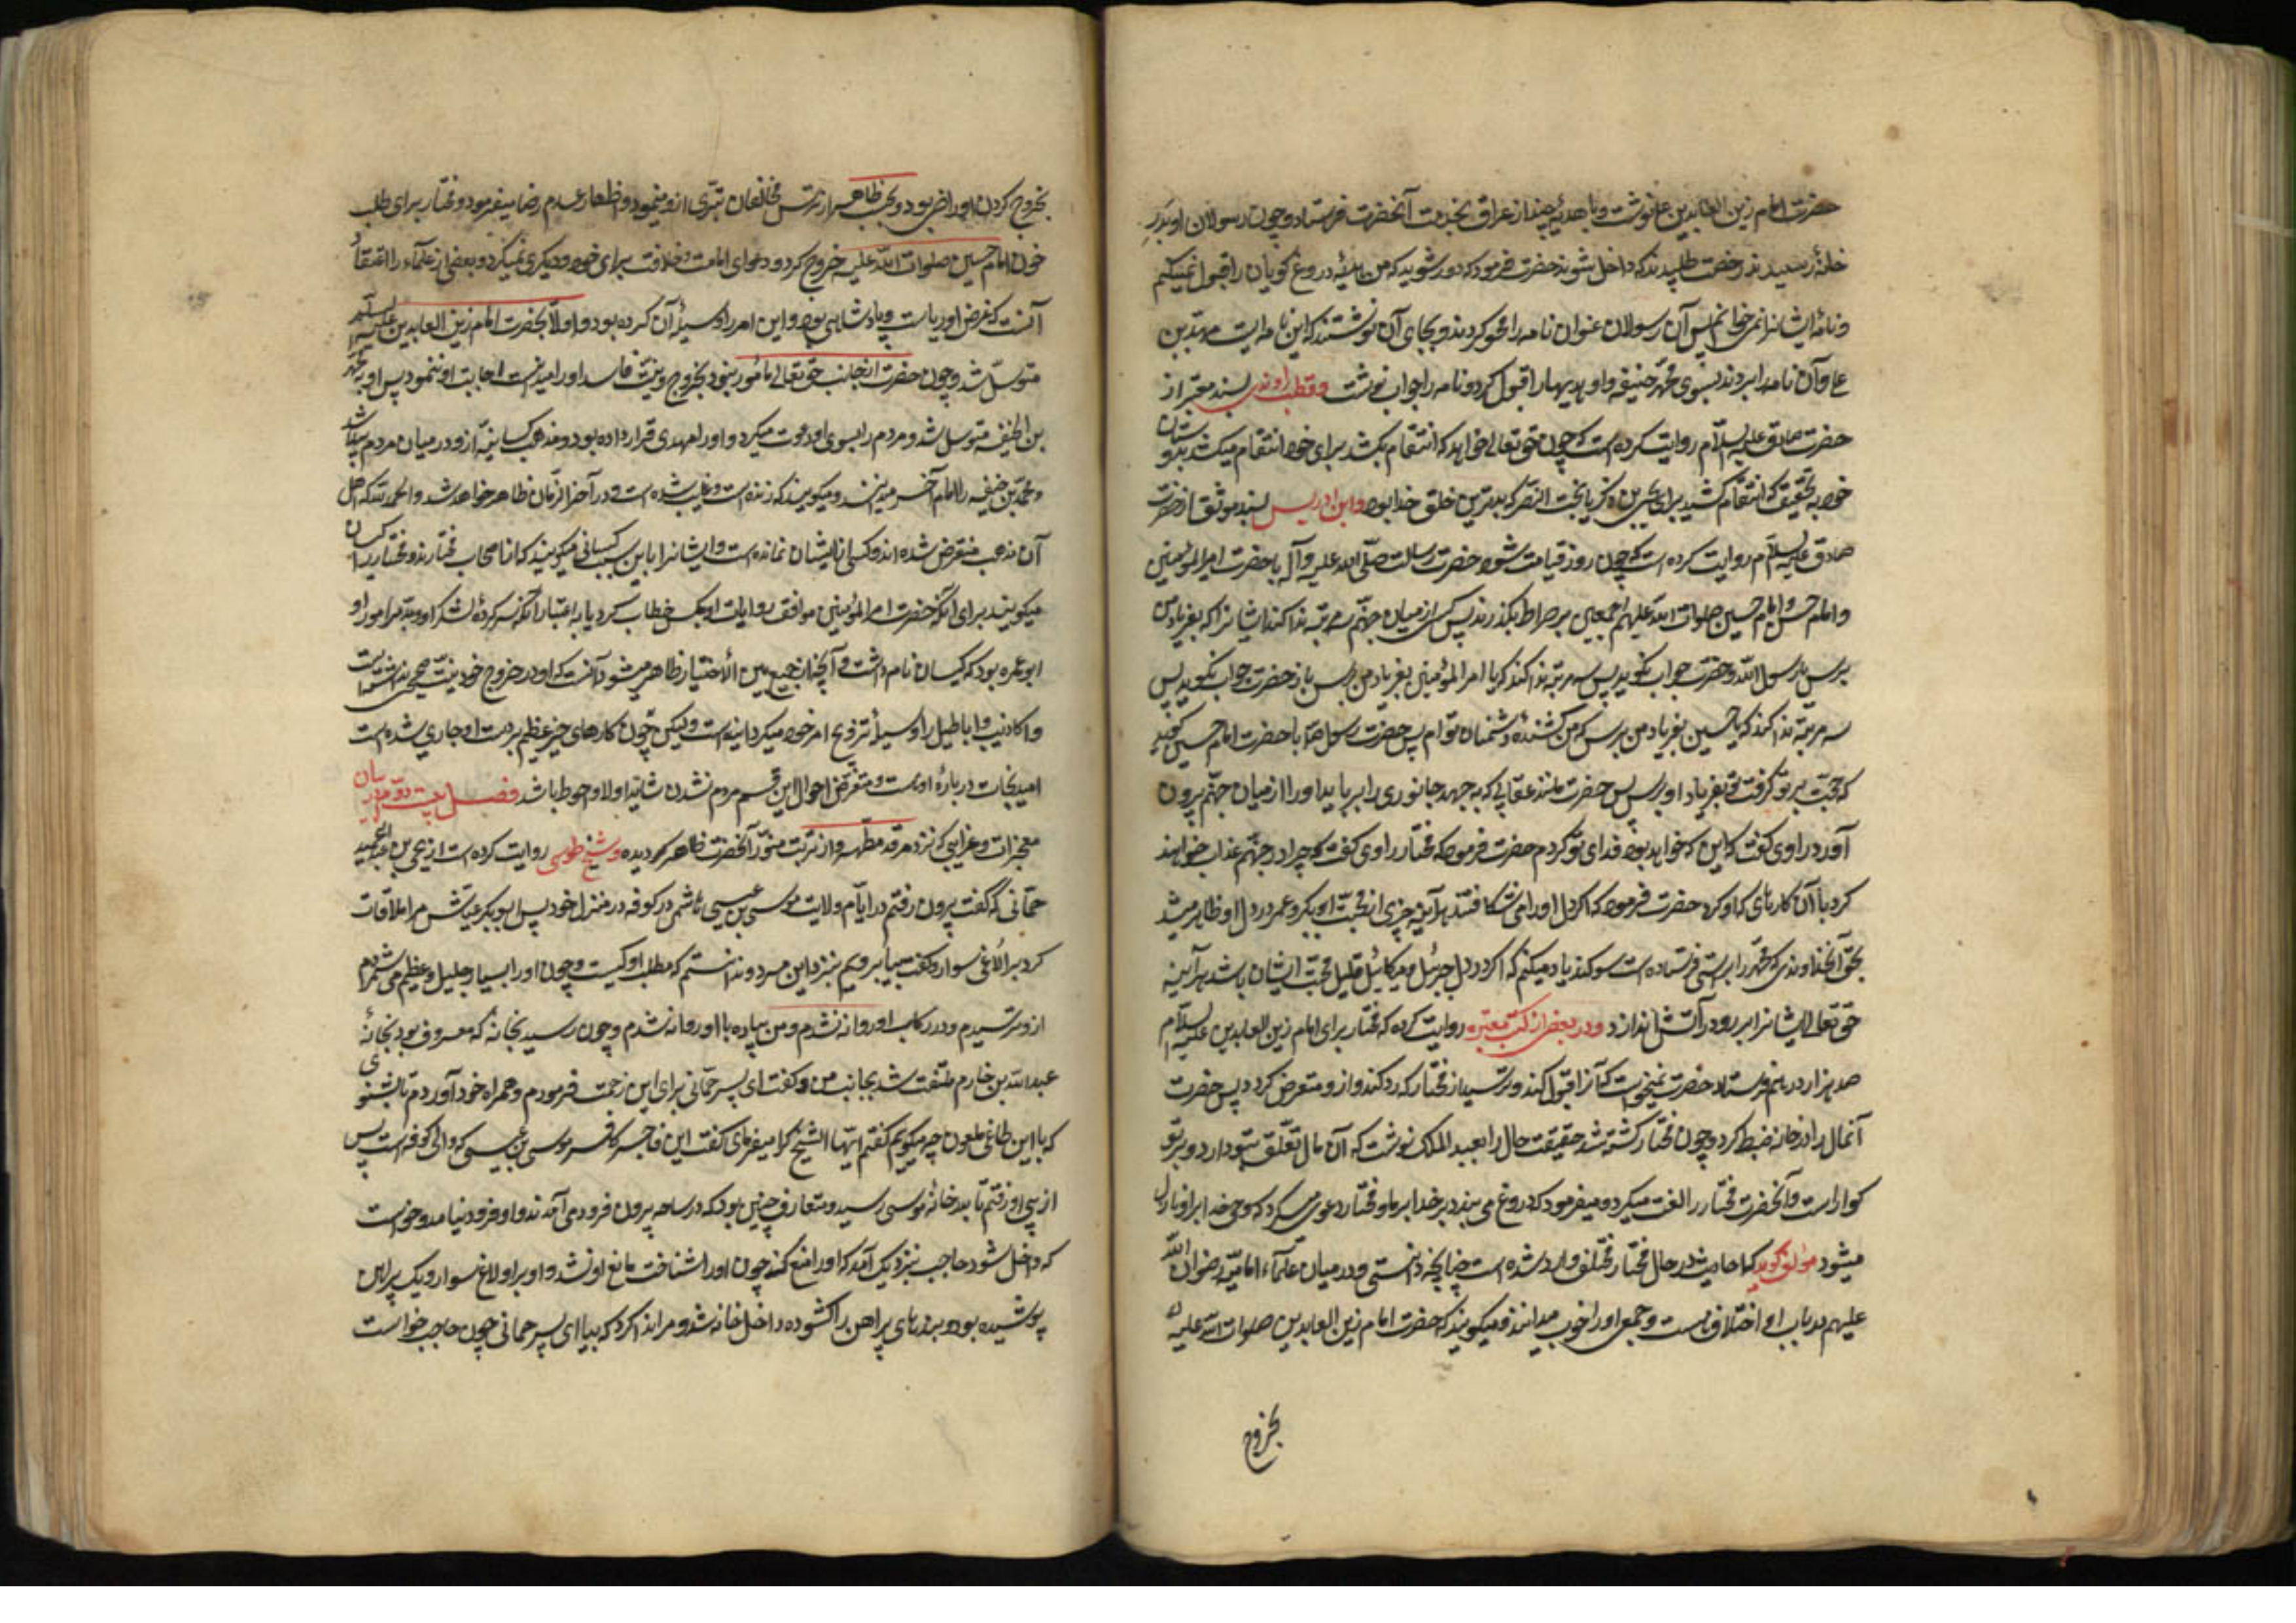 حضرت امام زین العابدین ع نوشت و با هدیهٔ چند از عراق بخدمت آنحضرت فرستاد و چون رسولان او بدر
خانه رسیدند رخصت طلبیدند که داخل شوند حضرت فرمود که دور شوید که من هدیهٔ دروغ گویان را قبول نمیکنم
و نامهٔ ایشانرا نمی خوانم پس آن رسولان عنوان نامه را محو کردند و بجای آن نوشتند که این نامه ایست مهدی بن
علی و آن نامه را بردند بسوی محمّد حنفیه و او هدیها را قبول کرد و نامه را جواب نوشت و قطب راوندی بسند معتبر از
حضرت صادق علیه السلام روایت کرده است که چون حق تعالی خواهد که انتقام بکشد برای دوستان خود انتقام میکشد به
خود بتحقیق که انتقام کشید برای یحیی بن زکریا ببخت النصر که بدترین خلق خدا بود و ابن ادریس بسند موثق از حضرت
صادق علیه السلام روایت کرده است که چون روز قیامت شود حضرت رسالت صلّی الله علیه و آله با حضرت امیرالمؤمنین
و امام حسن و امام حسین صلوات الله علیهم اجمعین بر صراط بگذرند پس کسی از میان جهنّم سه مرتبه ندا کند ایشانرا که بفریاد من
برس یا رسول الله و حضرت جواب نگوید پس سه مرتبه ندا کند که یا امیرالمؤمنین بفریاد من برس باز حضرت جواب نگوید پس
سه مرتبه ندا کند که یا حسین بفریاد من برس که من کشندهٔ دشمنان توام پس حضرت رسول ص با حضرت امام حسین گوید
که حجّت بر تو گرفت تو بفریاد او برس پس حضرت مانند عقابی که بجهد جانوری را برباید او را از میان جهنّم بیرون
آورد راوی گفت که این که خواهد بود فدای تو گردم حضرت فرمود که مختار راوی گفت که چرا در جهنّم عذاب خواهند
کرد با آن کارهای که او کرد حضرت فرمود که اگر دل او را می شکافتند هر آینه چیزی از محبّت ابوبکر و عمر در دل او ظاهر میشد
بحقّ آنخداوندی که محمّد را براستی فرستاده است سوگند یاد میکنم که اگر در دل جبرئیل و میکائیل قلیل محبّت ایشان باشد هر آینه
حق تعالی ایشانرا برو در آتش اندازد و در بعضی از کتب معتبره روایت کرده که مختار برای امام زین العابدین علیه السلام
صد هزار درهم فرستاد حضرت نمیخواست که آنرا قبول کند و ترسید از مختار که رد کند و از و متعرض گردد پس حضرت
آنمال را در خانه ضبط کرد و چون مختار کشته شد حقیقت حال را بعبد الملک نوشت که آن مال تعلّق بتو دارد و بر تو
گوارا است و آنحضرت مختار را لعنت میکرد و میفرمود که دروغ می بندد بر خدا و بر ما و مختار دعوی میکرد که وحی خدا بر او نازل
میشود مؤلف گوید که احادیث در حال مختار مختلف وارد شده است چنانچه دانستی و در میان علمآء امامیّه رضوان الله
علیهم در باب او اختلاف است و جمعی او را خوب میدانند و میگویند که حضرت امام زین العابدین صلوات الله علیه
بخروج
بخروج کردن او راضی بود و بحسب ظاهر از ترس مخالفان تبرّی از و مینمود و اظهار عدم رضا میفرمود و مختار برای طلب
خون امام حسین صلوات الله علیه خروج کرد و دعوای امامت و خلافت برای خود و دیگری نمیکرد و بعضی از علمآء را اعتقاد
آنست که غرض او ریاست و پادشاهی بود و این امر را وسیلهٔ آن کرده بود و اولا بحضرت امام زین العابدین علیه السلام
متوسّل شد و چون حضرت از جانب حق تعالی مامور نبود بخروج و نیّت فاسد او را میدانست اجابت او ننمود پس او به محمّد
بن الحنفیه متوسل شد و مردم را بسوی او دعوت میکرد و او را مهدی قرار داده بود و مذهب کیسانیه از و در میان مردم پیدا شد
و محمّد بن حنفیه را امام آخر میدانند و میگویند که زنده است و غایب شده است و در آخر الزمان ظاهر خواهد شد و الحمد لله که اهل
آن مذهب منقرض شده اند و کسی از ایشان نمانده است و ایشانرا باین سبب کیسانی میگویند که از اصحاب مختارند و مختار را کیسان
میگویند برای آنکه حضرت امیرالمؤمنین موافق روایات او را بکیس خطاب کرد یا به اعتبار آنکه سرکردهٔ لشکر او و مدبّر امور او
ابوعمره بود که کیسان نام داشت و آنچه از جمع بین الاخبار ظاهر میشود آنست که او در خروج خود نیّت صحیحی نداشته است
و اکاذیب و اباطیل را وسیلهٔ ترویج امر خود میکرد اینست ولیکن چون کارهای خیر عظیم بر دست او جاری شده است
امید نجات دربارهٔ او هست و متعرّض احوال این قسم مردم نشدن شاید اولی و احوط باشد فصل بیست و دوّم در بیان
معجزات و غرایبی که نزد مرقد مطهّر و از تربت منوّر آنحضرت ظاهر گردیده و شیخ طوسی روایت کرده است از یحیی بن عبد الحمید
حمّانی که گفت بیرون رفتم در ایّام ولایت موسی بن عیسی هاشمی در کوفه در منزل خود پس ابوبکر عیّاش مرا ملاقات
کرد بر الاغی سوار و گفت بیا برویم بنزد این مرد و ندانستم که مطلب او کیست و چون او را بسیار جلیل و عظیم می شمردم
از و نپرسیدم و در رکاب او روانه شدم و من پیاده با او روانه شدم و چون رسید بخانه که معروف بود بخانهٔ
عبد الله بن خازم ملتفت شد بجانب من و گفت ای پسر حمّانی برای این زحمت فرمودم و همراه خود آوردم تا بشنوی
که با این طاغی ملعون چه میگویم گفتم ایّها الشیخ کرا میفرمای گفت این فاجر کافر موسی بن عیسی که والی کوفه است پس
از پی او رفتم تا بدر خانه موسی رسید و متعارف چنین بود که در ساحه بیرون فرود می آمدند و او فرود نیامد و خواست
که داخل شود حاجب نزدیک آمد که او را منع کند چون او را شناخت مانع او نشد و او بر اولاغ سوار و یک پیراهن
پوشیده بود و بندهای پیراهن را کشوده داخل خانه شد و مرا ندا کرد که بیا ای پسر حمانی چون حاجب خواست